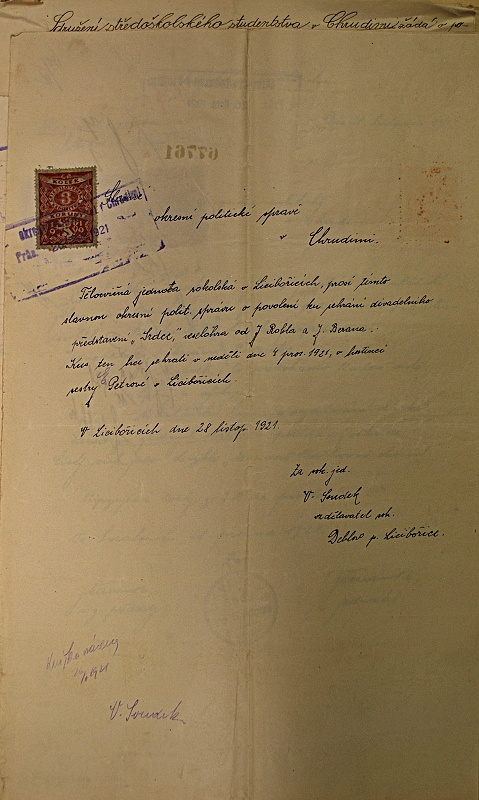 Sdružení středoškolského studentstva v Chrudimi žádá o po-
67761
KOLEK
3
KORUNY
1921
okresní politické správě
v
Chrudimi.
Tělocvičná jednota sokolská v Licibořicích, prosí tímto
slavnou okresní polit. správu o povolení ku sehrání divadelního
představení „Srdce", veselohra od J. Robla a J. Berana.
Kus ten hce sehráti v neděli dne 4 pros. 1921, v hostinci
sestry Petrové v Licibořicích.
V Licibořicích dne 28 listop. 1921.
Za sok. jed.
V. Soudek
vzdělavatel sok.
p. Licibořice.
1921
V. Soudek